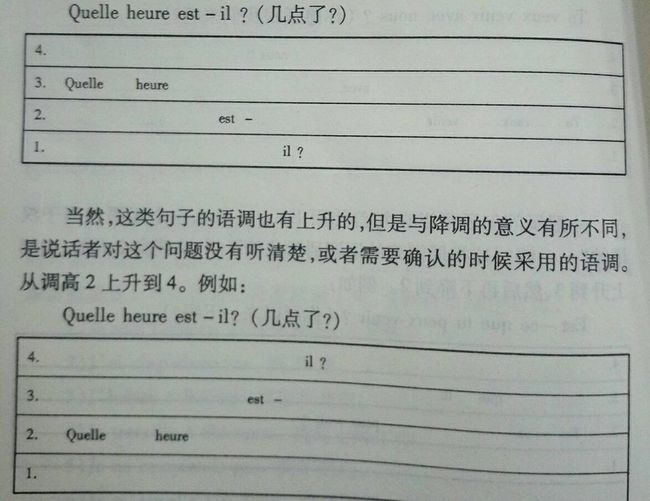 Quelle heure est – il ? (几点了?)
4.
3. Quelle heure
2. est –
1. il ?
当然,这类句子的语调也有上升的,但是与降调的意义有所不同,
是说话者对这个问题没有听清楚,或者需要确认的时候采用的语调。
从调高 2 上升到 4。例如:
Quelle heure est – il? (几点了?)
4. il ?
3. est –
2. Quelle heure
1.